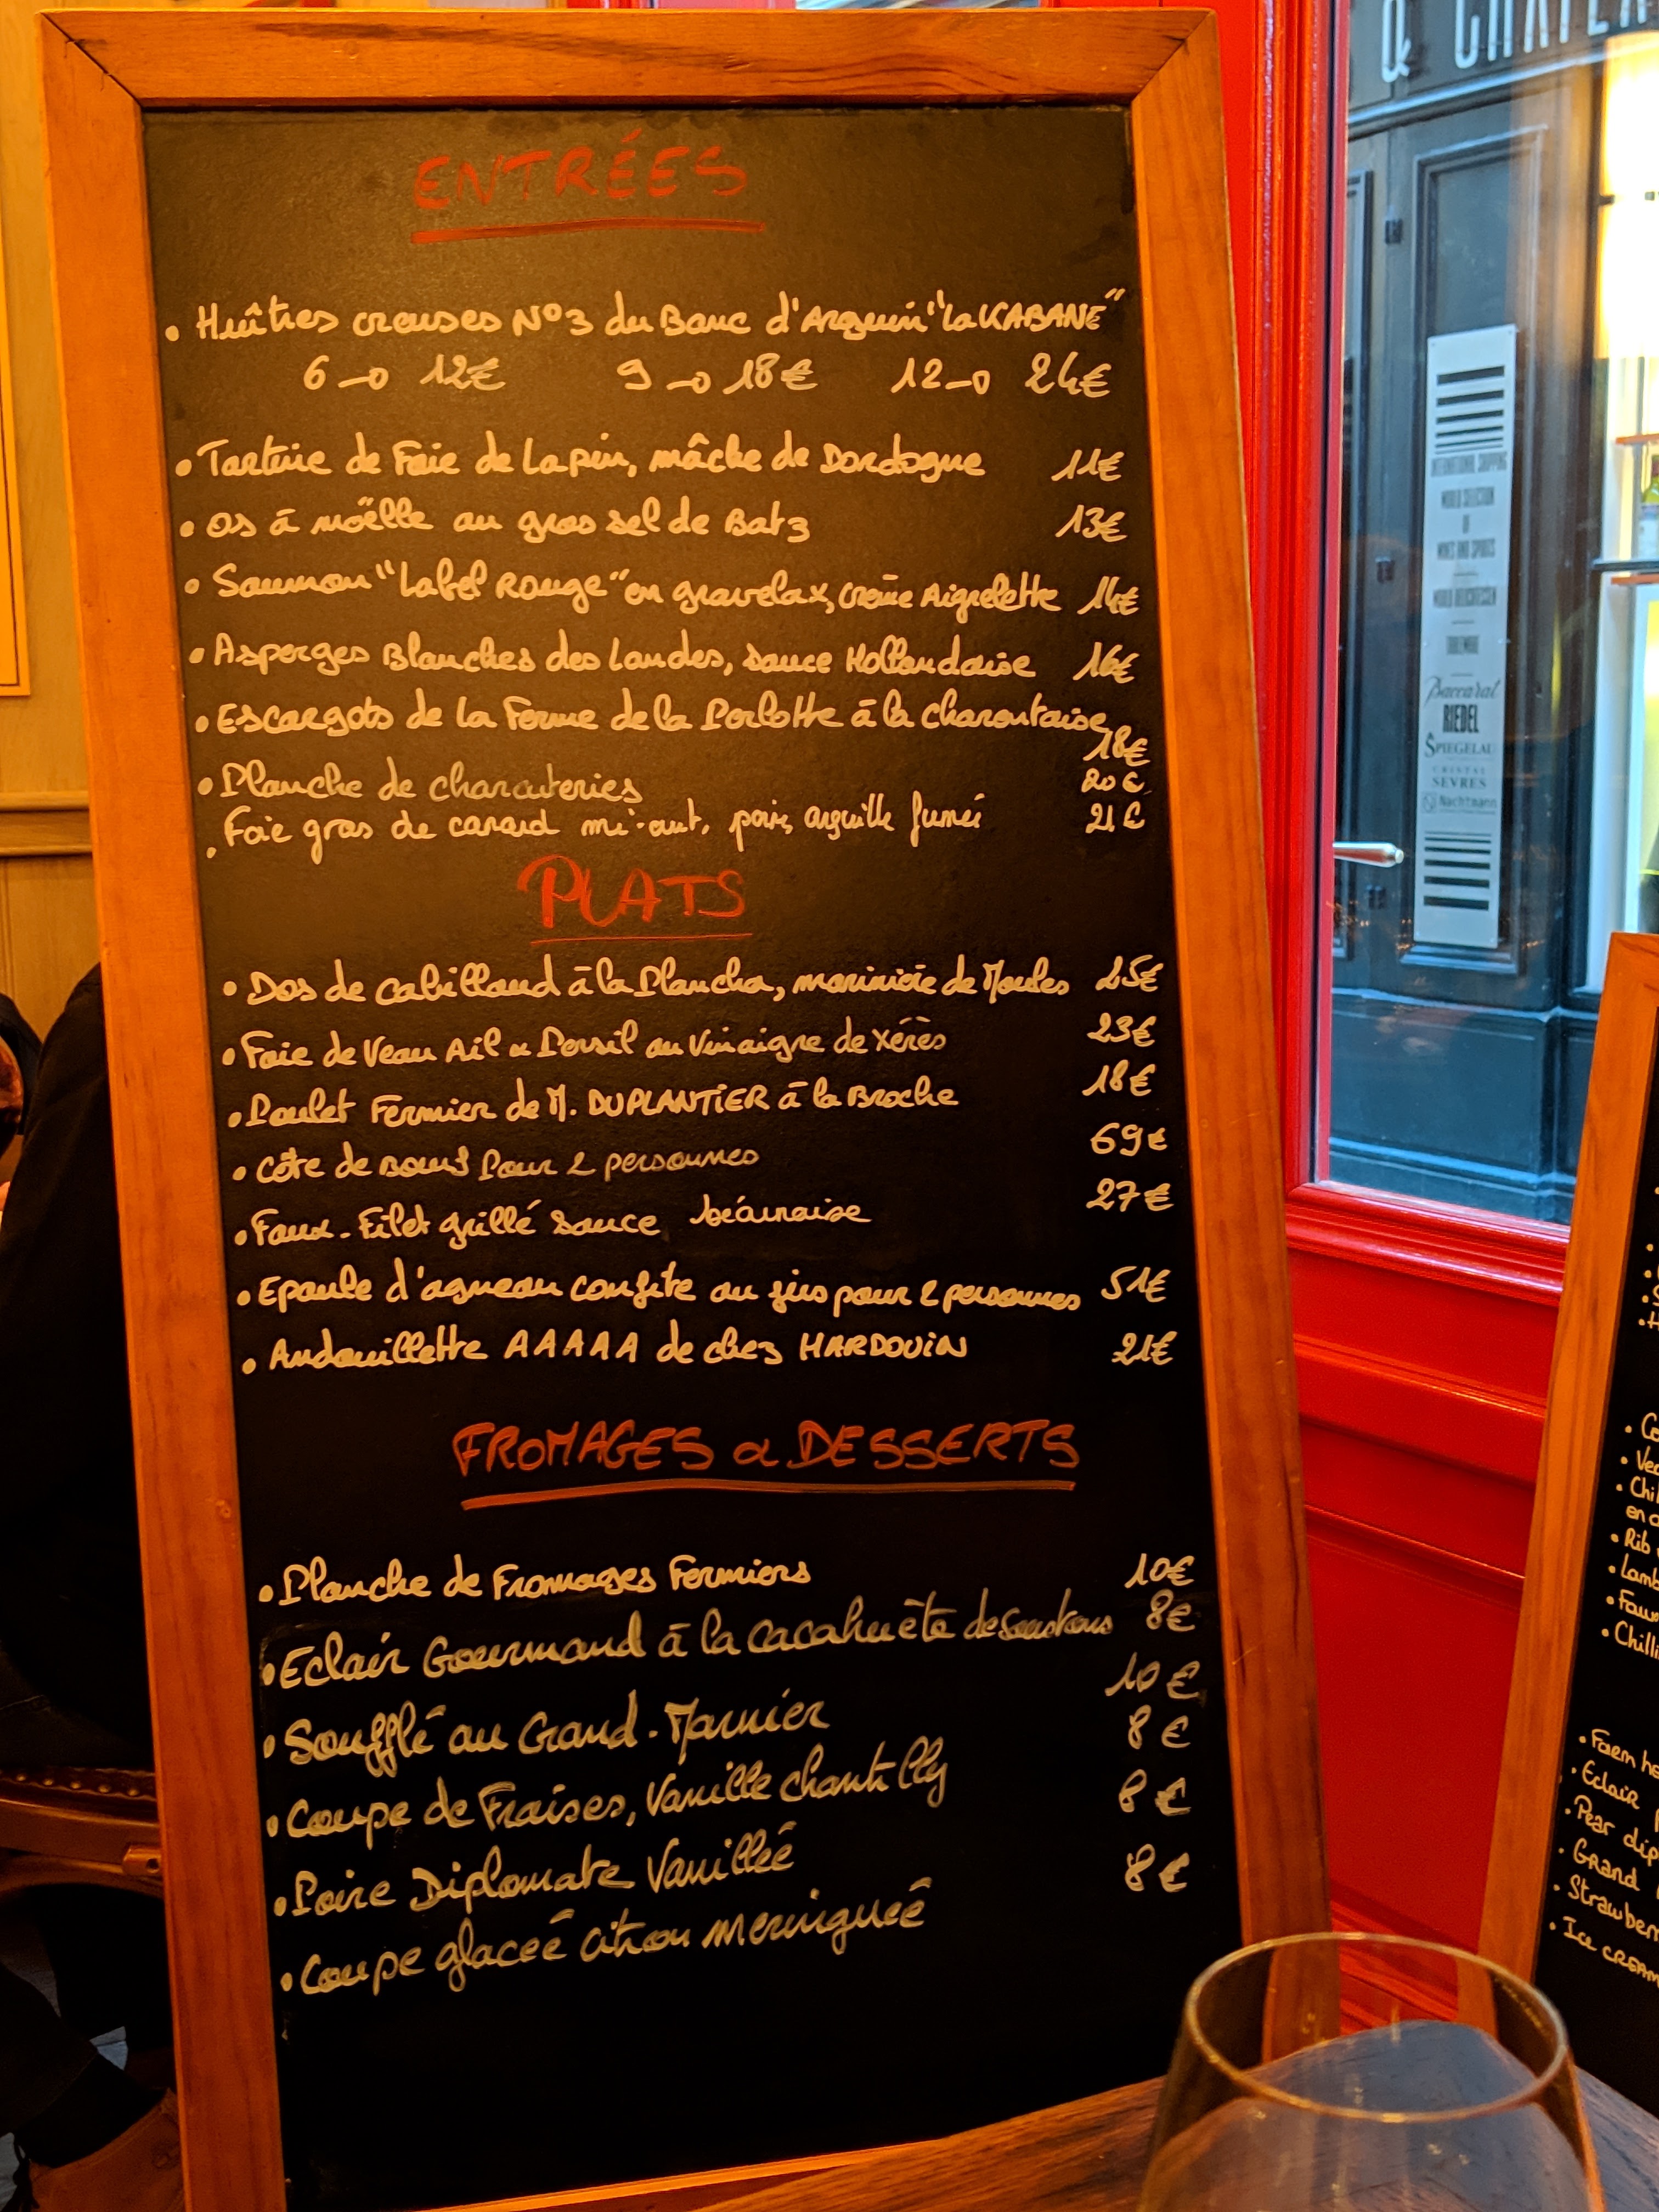 ENTRÉES
• Huîtres creuses N°3 du Banc d'Arguin "La KABANE"
6 → 12€ 9 → 18€ 12 → 24€
• Tartine de Foie de Lapin, mâche de Dordogne 11€
• Os à moëlle au gros sel de Batz 13€
• Saumon "Label Rouge" en gravelax, crème Aigrelette 14€
• Asperges Blanches des Landes, sauce Hollandaise 16€
• Escargots de la Ferme de la à la charentaise
18€
• Planche de charcuteries 20€
• Foie gras de canard mi-cuit, poire, anguille fumée 21€
PLATS
• Dos de cabillaud à la Plancha, marinière de Moules 25€
• Foie de Veau Ail & Persil au Vinaigre de Xérès 23€
• Poulet Fermier de M. DUPLANTIER à la Broche 18€
• Côte de Boeuf Pour 2 personnes 69€
• Faux-Filet grillé sauce béarnaise 27€
• Epaule d'agneau confite au jus pour 2 personnes 51€
• Andouillette AAAAA de chez HARDOUIN 21€
FROMAGES & DESSERTS
• Planche de Fromages Fermiers 10€
• Eclair Gourmand à la cacahuète de Soustons 8€
• Soufflé au Grand-Marnier 10€
• Coupe de Fraises, Vanille chantilly 8€
• Poire Diplomate Vanillée 8€
• Coupe glacée citron meringuée 8€
INTERNATIONAL SHIPPING
WORLD SELECTION
OF
WINES AND SPIRITS
WORLD DELICATESSEN
Baccarat
RIEDEL
SPIEGELAU
CRISTAL
SEVRES
Nachtmann
• Rib
• Lamb
• Faux
• Farm
• Eclair
• Pear
• Grand
• Ice CREAM